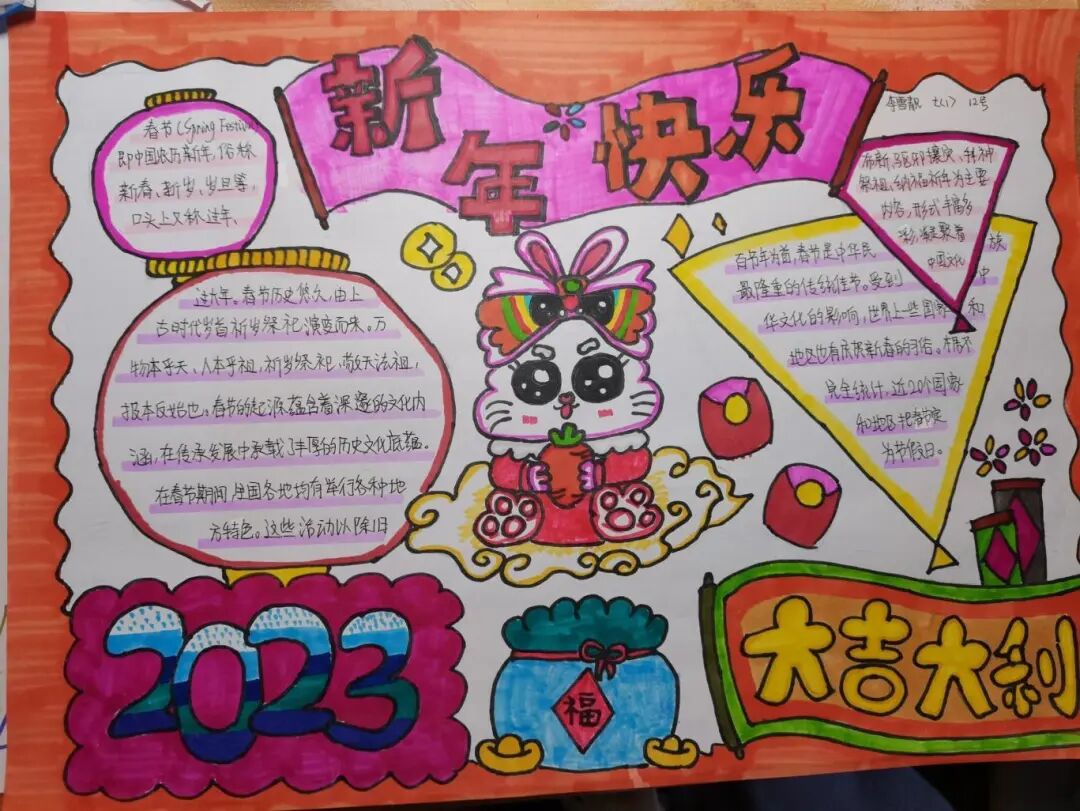 新年快乐
李雪靓 七(1) 12号
春节(Spring Festival)
即中国农历新年,俗称
新春、新岁、岁旦等,
口头上又称过年、
过大年。春节历史悠久,由上
古时代岁首祈岁祭祀演变而来。万
物本乎天、人本乎祖,祈岁祭祀,敬天法祖,
报本反始也。春节的起源蕴含着深邃的文化内
涵,在传承发展中承载了丰厚的历史文化底蕴。
在春节期间,全国各地均有举行各种地
方特色。这些活动以除旧
布新、驱邪攘灾、拜神
祭祖、纳福祈年为主要
内容,形式丰富多
彩,凝聚着
中国文化
百节年为首,春节是中华民族
最隆重的传统佳节。受到中
华文化的影响,世界上一些国家和
地区也有庆贺新春的习俗。据不
完全统计,近20个国家
和地区把春节定
为节假日。
2023
福
大吉大利